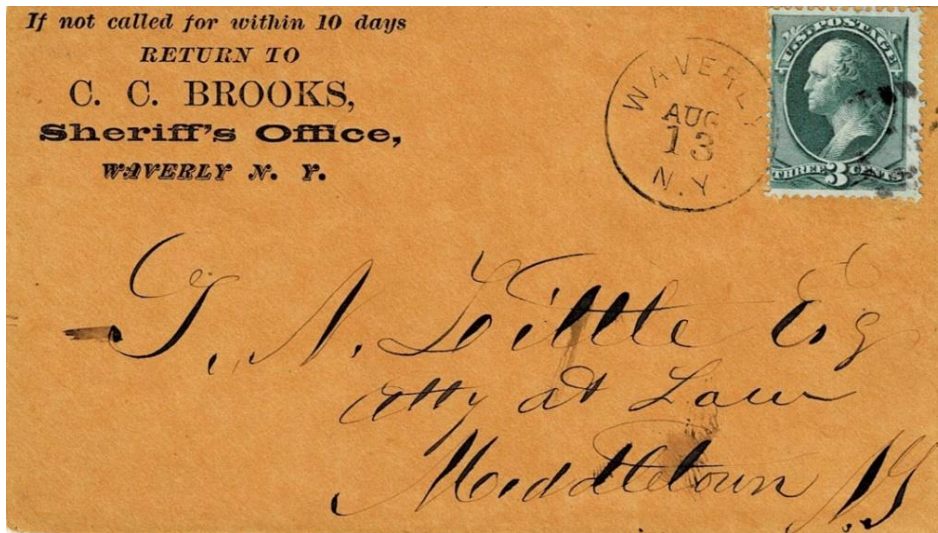 If not called for within 10 days
RETURN TO
C. C. BROOKS,
Sheriff's Office,
WAVERLY N. Y.
WAVERLY
AUG
13
N.Y.
U.S. POSTAGE
THREE 3 CENTS
T. N. Little Esq
Atty at Law
Middletown N.Y